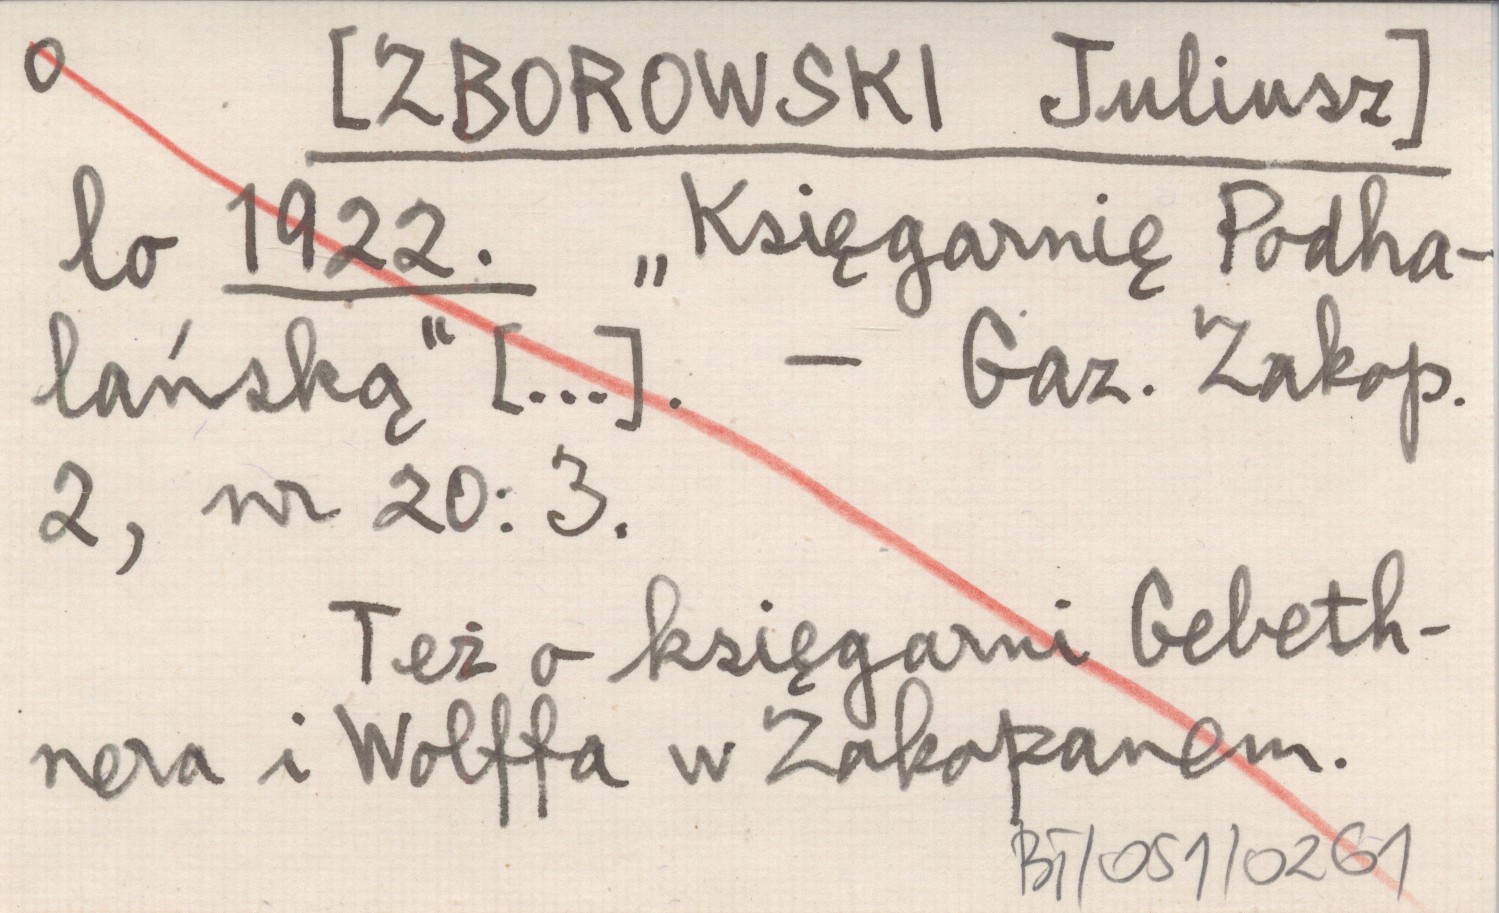 o [ZBOROWSKI Juliusz]
lo 1922. „Księgarnię Podha-
lańską" [...]. — Gaz. Zakop.
2, nr 20: 3.
Też o księgarni Gebeth-
nera i Wolffa w Zakopanem.
BT/051/0261